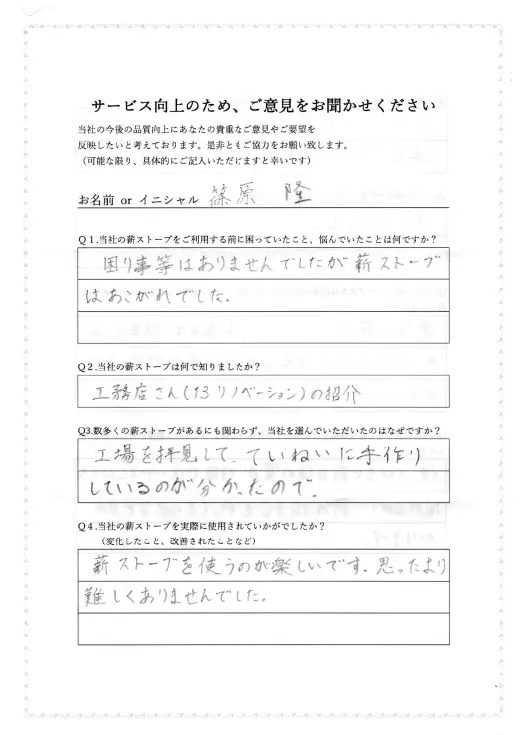 サービス向上のため、ご意見をお聞かせください
当社の今後の品質向上にあなたの貴重なご意見やご要望を
反映したいと考えております。是非ともご協力をお願い致します。
（可能な限り、具体的にご記入いただけますと幸いです）
お名前 or イニシャル 篠原 隆
Q1.当社の薪ストーブをご利用する前に困っていたこと、悩んでいたことは何ですか？
困り事等はありませんでしたが薪ストーブ
はあこがれでした.
Q2.当社の薪ストーブは何で知りましたか？
工務店さん(13リノベーション)の紹介
Q3.数多くの薪ストーブがあるにも関わらず、当社を選んでいただいたのはなぜですか？
工場を拝見して、ていねいに手作り
しているのが分かったので.
Q4.当社の薪ストーブを実際に使用されていかがでしたか？
（変化したこと、改善されたことなど）
薪ストーブを使うのが楽しいです.思ったより
難しくありませんでした。